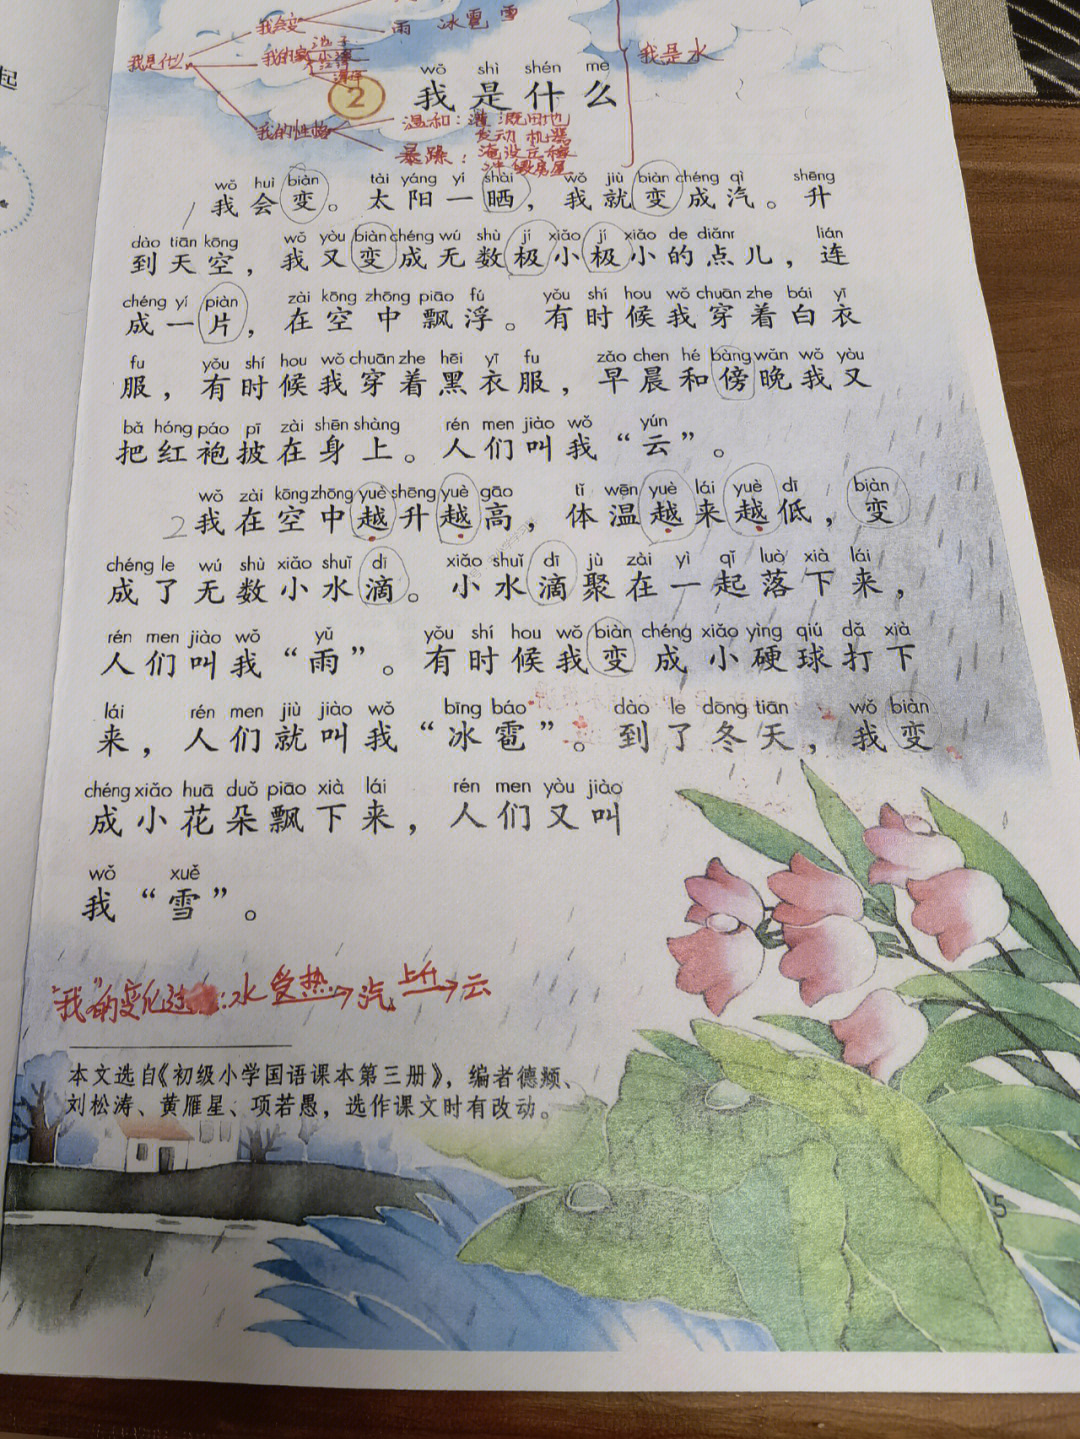 起
我会变
雨 冰雹 雪
我是什么
我的家
池子
小溪
我是水
wǒ shì shén me
2 我是什么
我的性格
温和：灌溉田地
发动机器
暴躁：淹没庄稼
冲毁房屋
wǒ huì biàn tài yáng yí shài wǒ jiù biàn chéng qì shēng
1 我会变。太阳一晒，我就变成汽。升
dào tiān kōng wǒ yòu biàn chéng wú shù jí xiǎo jí xiǎo de diǎnr lián
到天空，我又变成无数极小极小的点儿，连
chéng yí piàn zài kōng zhōng piāo fú yǒu shí hou wǒ chuān zhe bái yī
成一片，在空中飘浮。有时候我穿着白衣
fu yǒu shí hou wǒ chuān zhe hēi yī fu zǎo chen hé bàng wǎn wǒ yòu
服，有时候我穿着黑衣服，早晨和傍晚我又
bǎ hóng páo pī zài shēn shàng rén men jiào wǒ yún
把红袍披在身上。人们叫我“云”。
wǒ zài kōng zhōng yuè shēng yuè gāo tǐ wēn yuè lái yuè dī biàn
2 我在空中越升越高，体温越来越低，变
chéng le wú shù xiǎo shuǐ dī xiǎo shuǐ dī jù zài yì qǐ luò xià lái
成了无数小水滴。小水滴聚在一起落下来，
rén men jiào wǒ yǔ yǒu shí hou wǒ biàn chéng xiǎo yìng qiú dǎ xià
人们叫我“雨”。有时候我变成小硬球打下
lái rén men jiù jiào wǒ bīng báo dào le dōng tiān wǒ biàn
来，人们就叫我“冰雹”。到了冬天，我变
chéng xiǎo huā duǒ piāo xià lái rén men yòu jiào
成小花朵飘下来，人们又叫
wǒ xuě
我“雪”。
“我”的变化过：水 受热→ 汽 上升→ 云
本文选自《初级小学国语课本第三册》，编者德颒、
刘松涛、黄雁星、项若愚，选作课文时有改动。
5